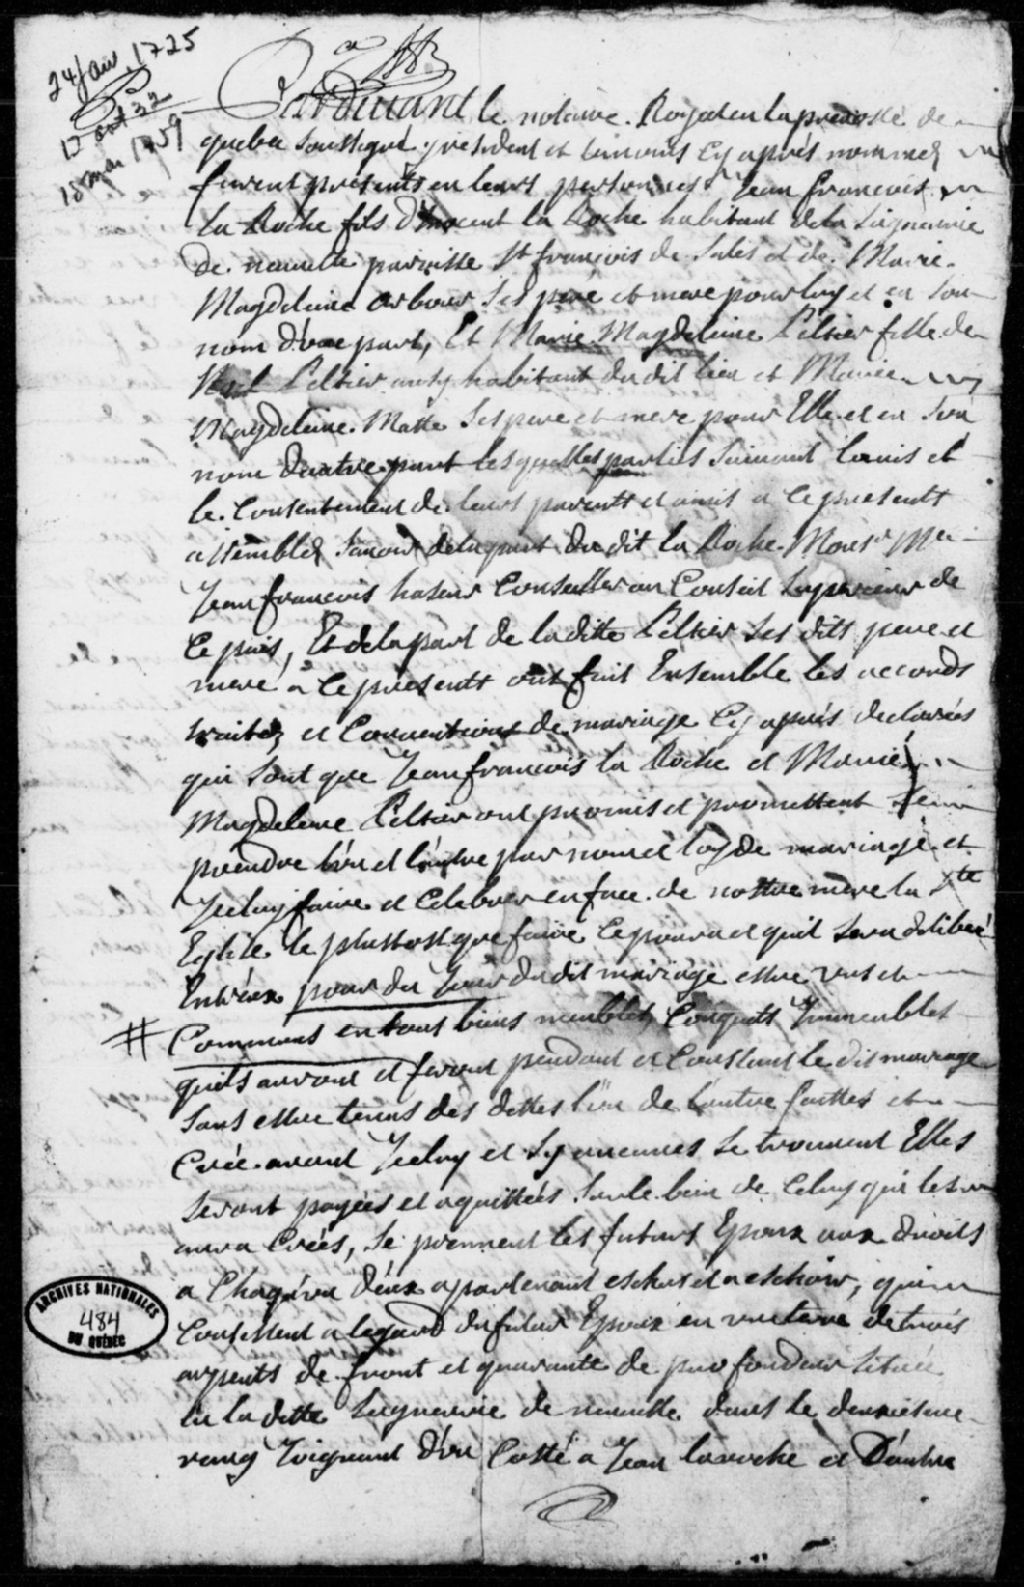 24 Janv. 1725
12 oct 32
18 mai 1759
Pardevant le notaire Royal en la prevosté de
quebec soussigné y residant et temoins cy apres nommez
furent présents en leurs personnes Jean françois
la Roche fils d'Inocent la Roche habitant de la Seigneurie
de neuville parroisse St françois de Sales et de Marie
Magdeleine ses pere et mere pour luy et en son
nom d'vne part, Et Marie Magdeleine Peltier fille de
Noel Peltier aussy habitant du dit lieu et Marie
Magdeleine Matte ses pere et mere pour Elle et en son
nom d'autre part lesquelles parties suivant lavis et
le Consentement de leurs parents et amis a ce presents
assemblez scavoir de la part du dit la Roche Monsr Me
Jean françois hazeur Conseiller au Conseil Superieur de
ce païs, Et de la part de la ditte Peltier ses dits pere et
mere a ce presents ont fait Ensemble les accords
traitez et Conventions de mariage Cy après declarées
qui sont que Jean françois la Roche et Marie
Magdeleine Peltier ont promis et promettent se
prendre l'vn et l'autre par nom et loy de mariage et
Jceluy faire et Celebrer en face de nostre mere la Ste
Eglise le plustost que faire ce pourra et quil sera deliberé
Entr'eux pour du Jour du dit mariage estre vns et
# Communs en tous biens meubles, Conquets Jmmeubles
quils auront et feront pendant et Constant le dit mariage
sans estre tenus des dettes l'vn de l'autre faittes et
Créé avant Jceluy et sy aucunnes se trouvent Elles
seront payées et aquittées sur le bien de Celuy qui les
aura Créés, Se prennent les futurs Epoux aux droits
a Chaqu'vn d'eux apartenant eschus et a eschoir, qui
Consistent a legard du futur Epoux en vne terre de trois
arpents de front et quarante de profondeur située
en la ditte Seigneurie de neuville dans le deuxiesme
rang Joignant d'vn Costé a Jean laroche et D'autre
ARCHIVES NATIONALES
484
DU QUÉBEC